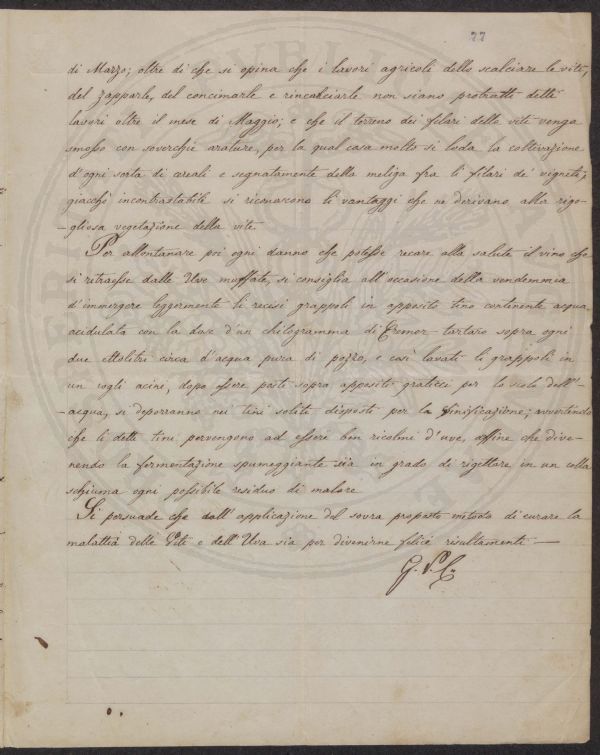 77
di Marzo; oltre di che si opina che i lavori agricoli dello scalciare le viti,
del zapparle, del concimarle e rincalciarle non siano protratti detti
lavori oltre il mese di Maggio; e che il terreno dei filari della viti venga
smosso con soverchie arature, per la qual casa molto si loda la coltivazione
d'ogni sorta di cereali e segnatamente della meliga fra li filari de' vigneti;
giacchè incontrastabile si riconoscono li vantaggi che ne derivano alla rigo-
-gliosa vegetazione della vite.
Per allontanare poi ogni danno che potesse recare alla salute il vino che
si retraesse dalle Uve muffate, si consiglia all'occasione della vendemmia
d'immergere leggermente li recisi grappoli in apposito tino contenente acqua
acidulata con la dose d'un chilogramma di Cremor-tartaro sopra ogni
due ettolitri circa d'acqua pura di pozzo, e così lavati li grappoli in
un cogli acini, dopo essere posti sopra appositi graticci per lo scolo dell'-
-acqua, si deporranno nei tini soliti disposti per la Vinificazione; avvertendo
che li detti tini pervengono ad essere ben ricolmi d'uve, affine che dive-
nendo la fermentazione spumeggiante sia in grado di rigettare in un colla
schiuma ogni possibile residuo di malore
Si persuade che dall'applicazione del sovra proposto metodo di curare la
malattia delle Viti e dell'Uva sia per divenirne felici risultamenti —